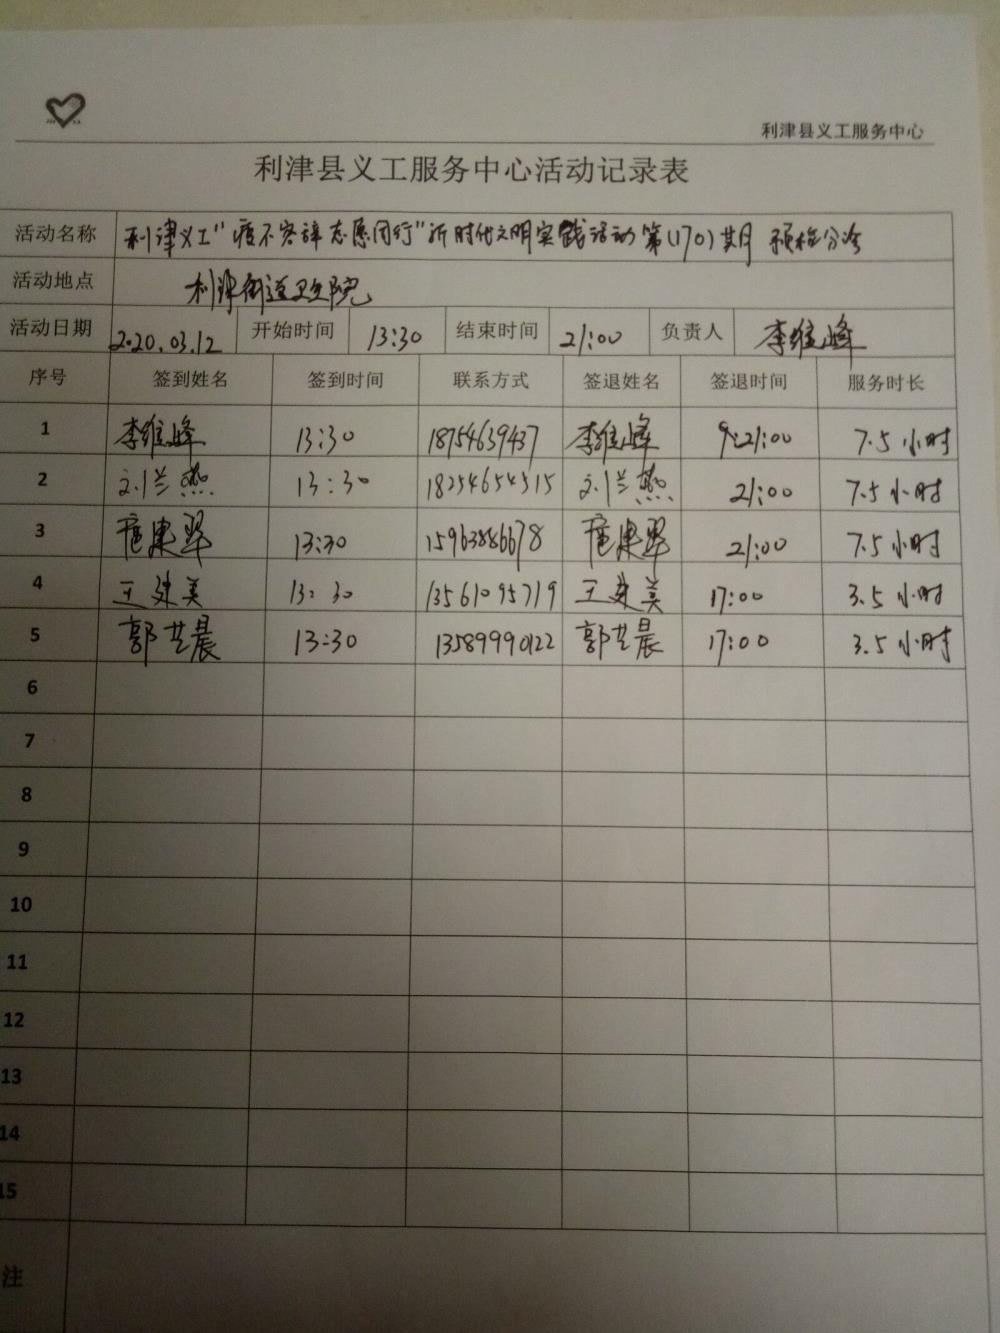 利津县义工服务中心
利津县义工服务中心活动记录表
活动名称 利津义工"疫不容辞志愿同行"新时代文明实践活动第(170)期 预检分诊
活动地点 利津街道卫生院
活动日期 2020.03.12 开始时间 13:30 结束时间 21:00 负责人 李维峰
序号 签到姓名 签到时间 联系方式 签退姓名 签退时间 服务时长
1 李维峰 13:30 18754639437 李维峰 21:00 7.5小时
2 刘兰燕 13:30 18254654515 刘兰燕 21:00 7.5小时
3 建翠 13:30 15963886678 建翠 21:00 7.5小时
4 王建美 13:30 13561095719 王建美 17:00 3.5小时
5 郭艺晨 13:30 13589990122 郭艺晨 17:00 3.5小时
6
7
8
9
10
11
12
13
14
15
注